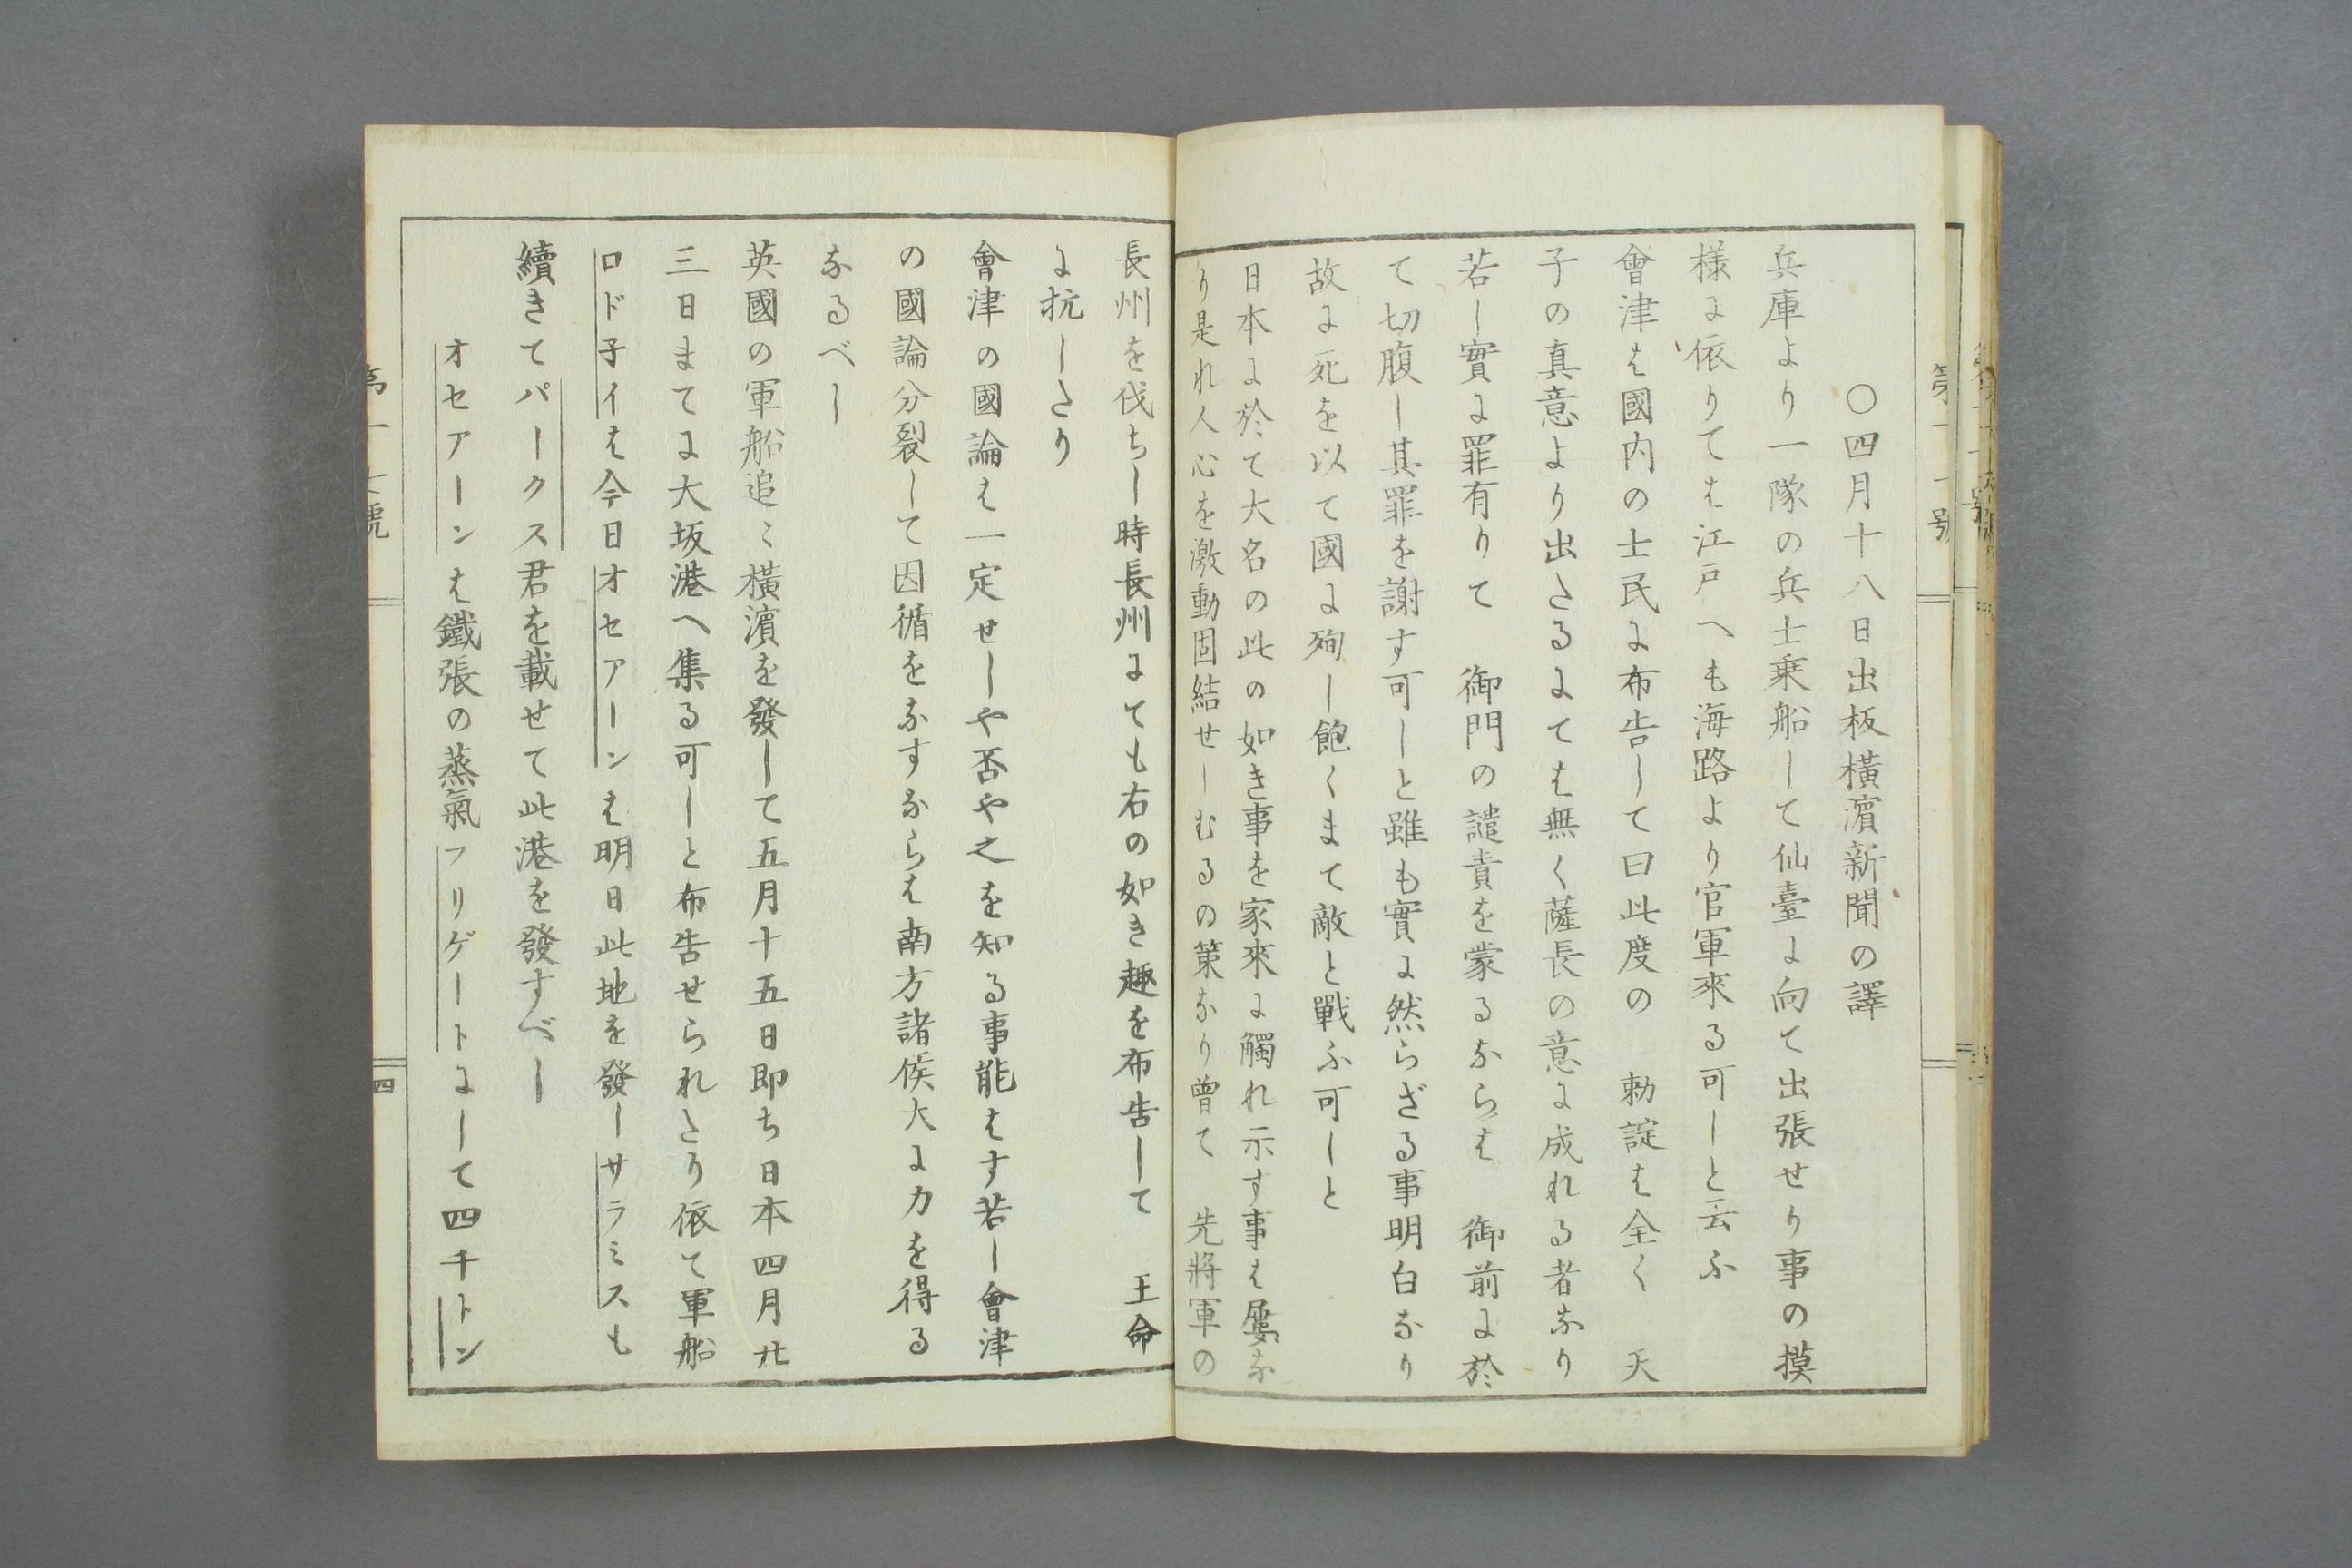 ○四月十八日出板横濵新聞の譯
兵庫より一隊の兵士乗船して仙臺に向て出張せり事の摸
様に依りては江戸へも海路より官軍來る可しと云ふ
會津は國内の士民に布告して曰此度の　勅諚は全く　天
子の真意より出たるにては無く薩長の意に成れる者なり
若し實に罪有りて　御門の譴責を蒙るならば　御前に於
て切腹し其罪を謝す可しと雖も實に然らざる事明白なり
故に死を以て國に殉し飽くまて敵と戰ふ可しと
日本に於て大名の此の如き事を家來に觸れ示す事は屢な
り是れ人心を激動固結せしむるの策なり曾て　先將軍の
長州を伐ちし時長州にても右の如き趣を布告して　王命
に抗したり
會津の國論は一定せしや否や之を知る事能はす若し會津
の國論分裂して因循をなすならは南方諸侯大に力を得る
なるべし
英國の軍船追〻横濵を發して五月十五日即ち日本四月廿
三日まてに大坂港へ集る可しと布告せられたり依て軍船
ロド子イは今日オセアーンは明日此地を發しサラミスも
續きてパークス君を載せて此港を發すべし
オセアーンは鐵張の蒸氣フリゲートにして四千トン
第十七號
四